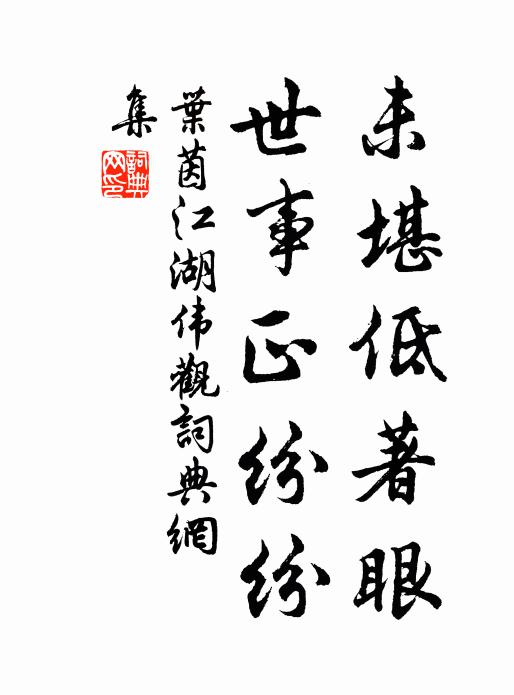 未堪低著眼
世事正纷纷
葉茵江湖伟觀詞典網
集
詞典
网印